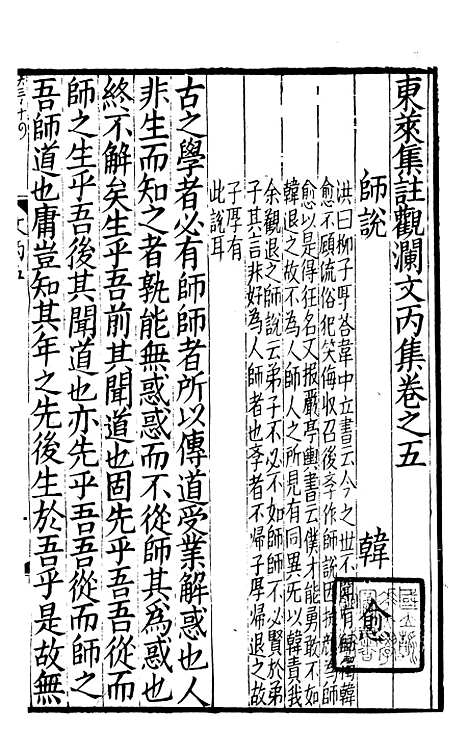 東萊集註觀瀾文丙集卷之五
師說　韓愈
洪曰柳子厚荅韋中立書云今之世不聞有師獨韓
愈不顧流俗犯笑侮收召後學作師說因抗顏為師
愈以是得狂名又报嚴厚輿書云僕才能勇敢不如
韓退之故不為人師人之所見有同異无以韓責我
余觀退之師說云弟子不必不如師師不必賢於弟
子其言非好為人師者也李者不歸子厚歸退之故
子厚有
此說耳
古之學者必有師師者所以傳道受業解惑也人
非生而知之者孰能無惑惑而不從師其為惑也
終不解矣生乎吾前其聞道也固先乎吾吾從而
師之生乎吾後其聞道也亦先乎吾吾從而師之
吾師道也庸豈知其年之先後生於吾乎是故無